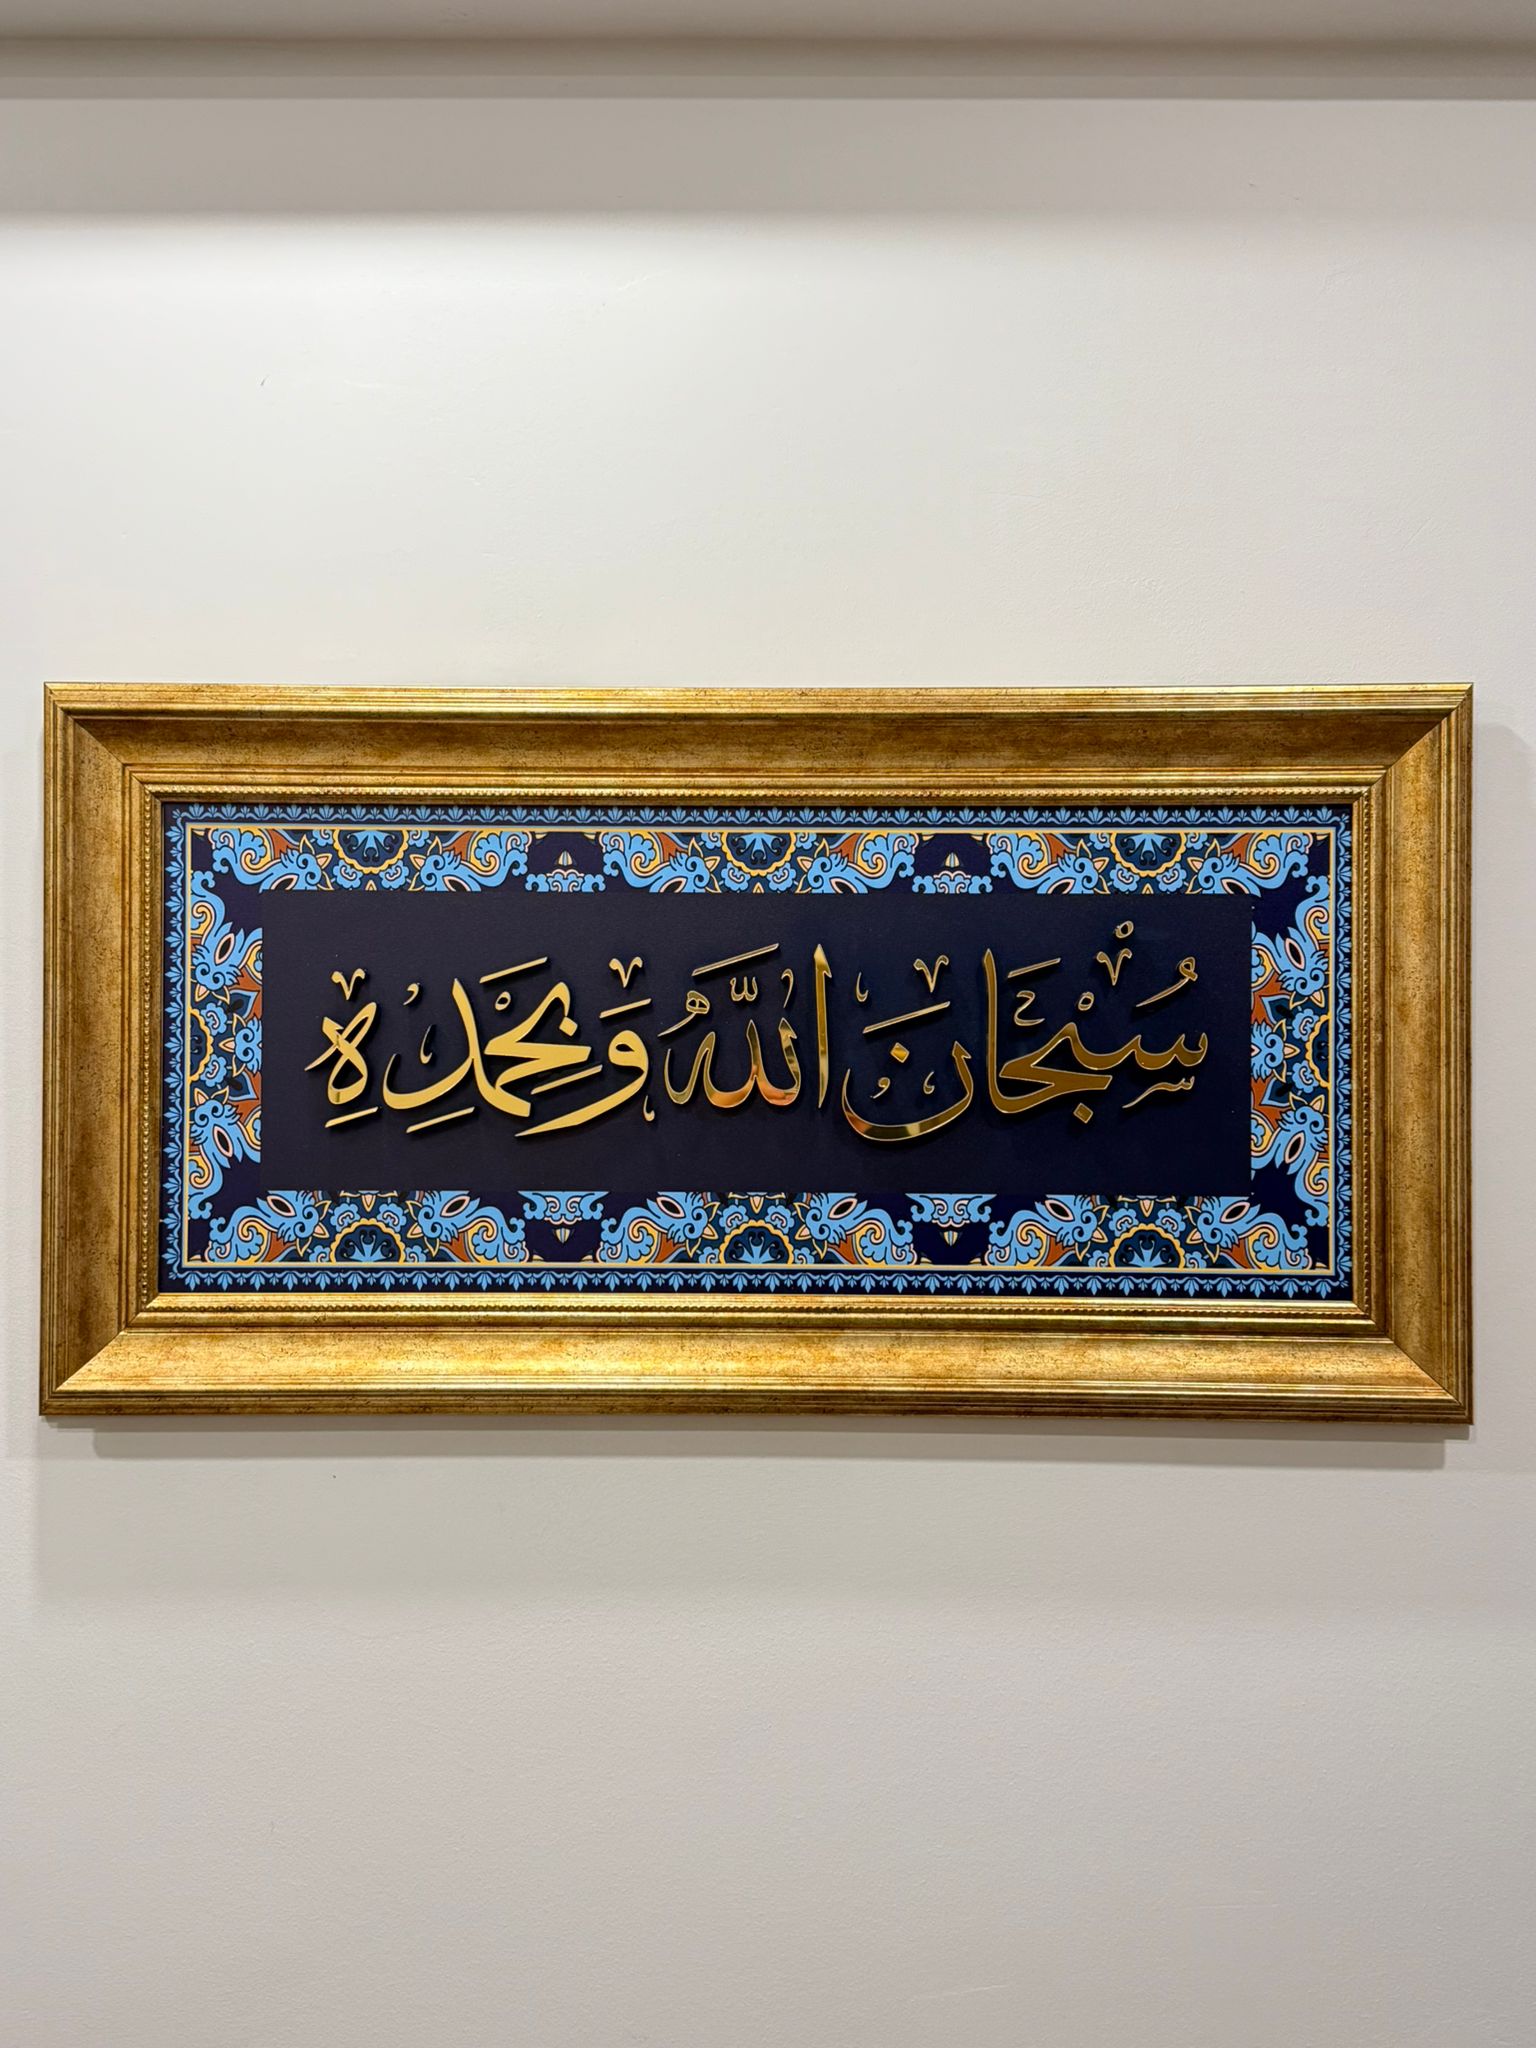 سُبْحَانَ اللَّهُ وَبِحَمْدِهِ